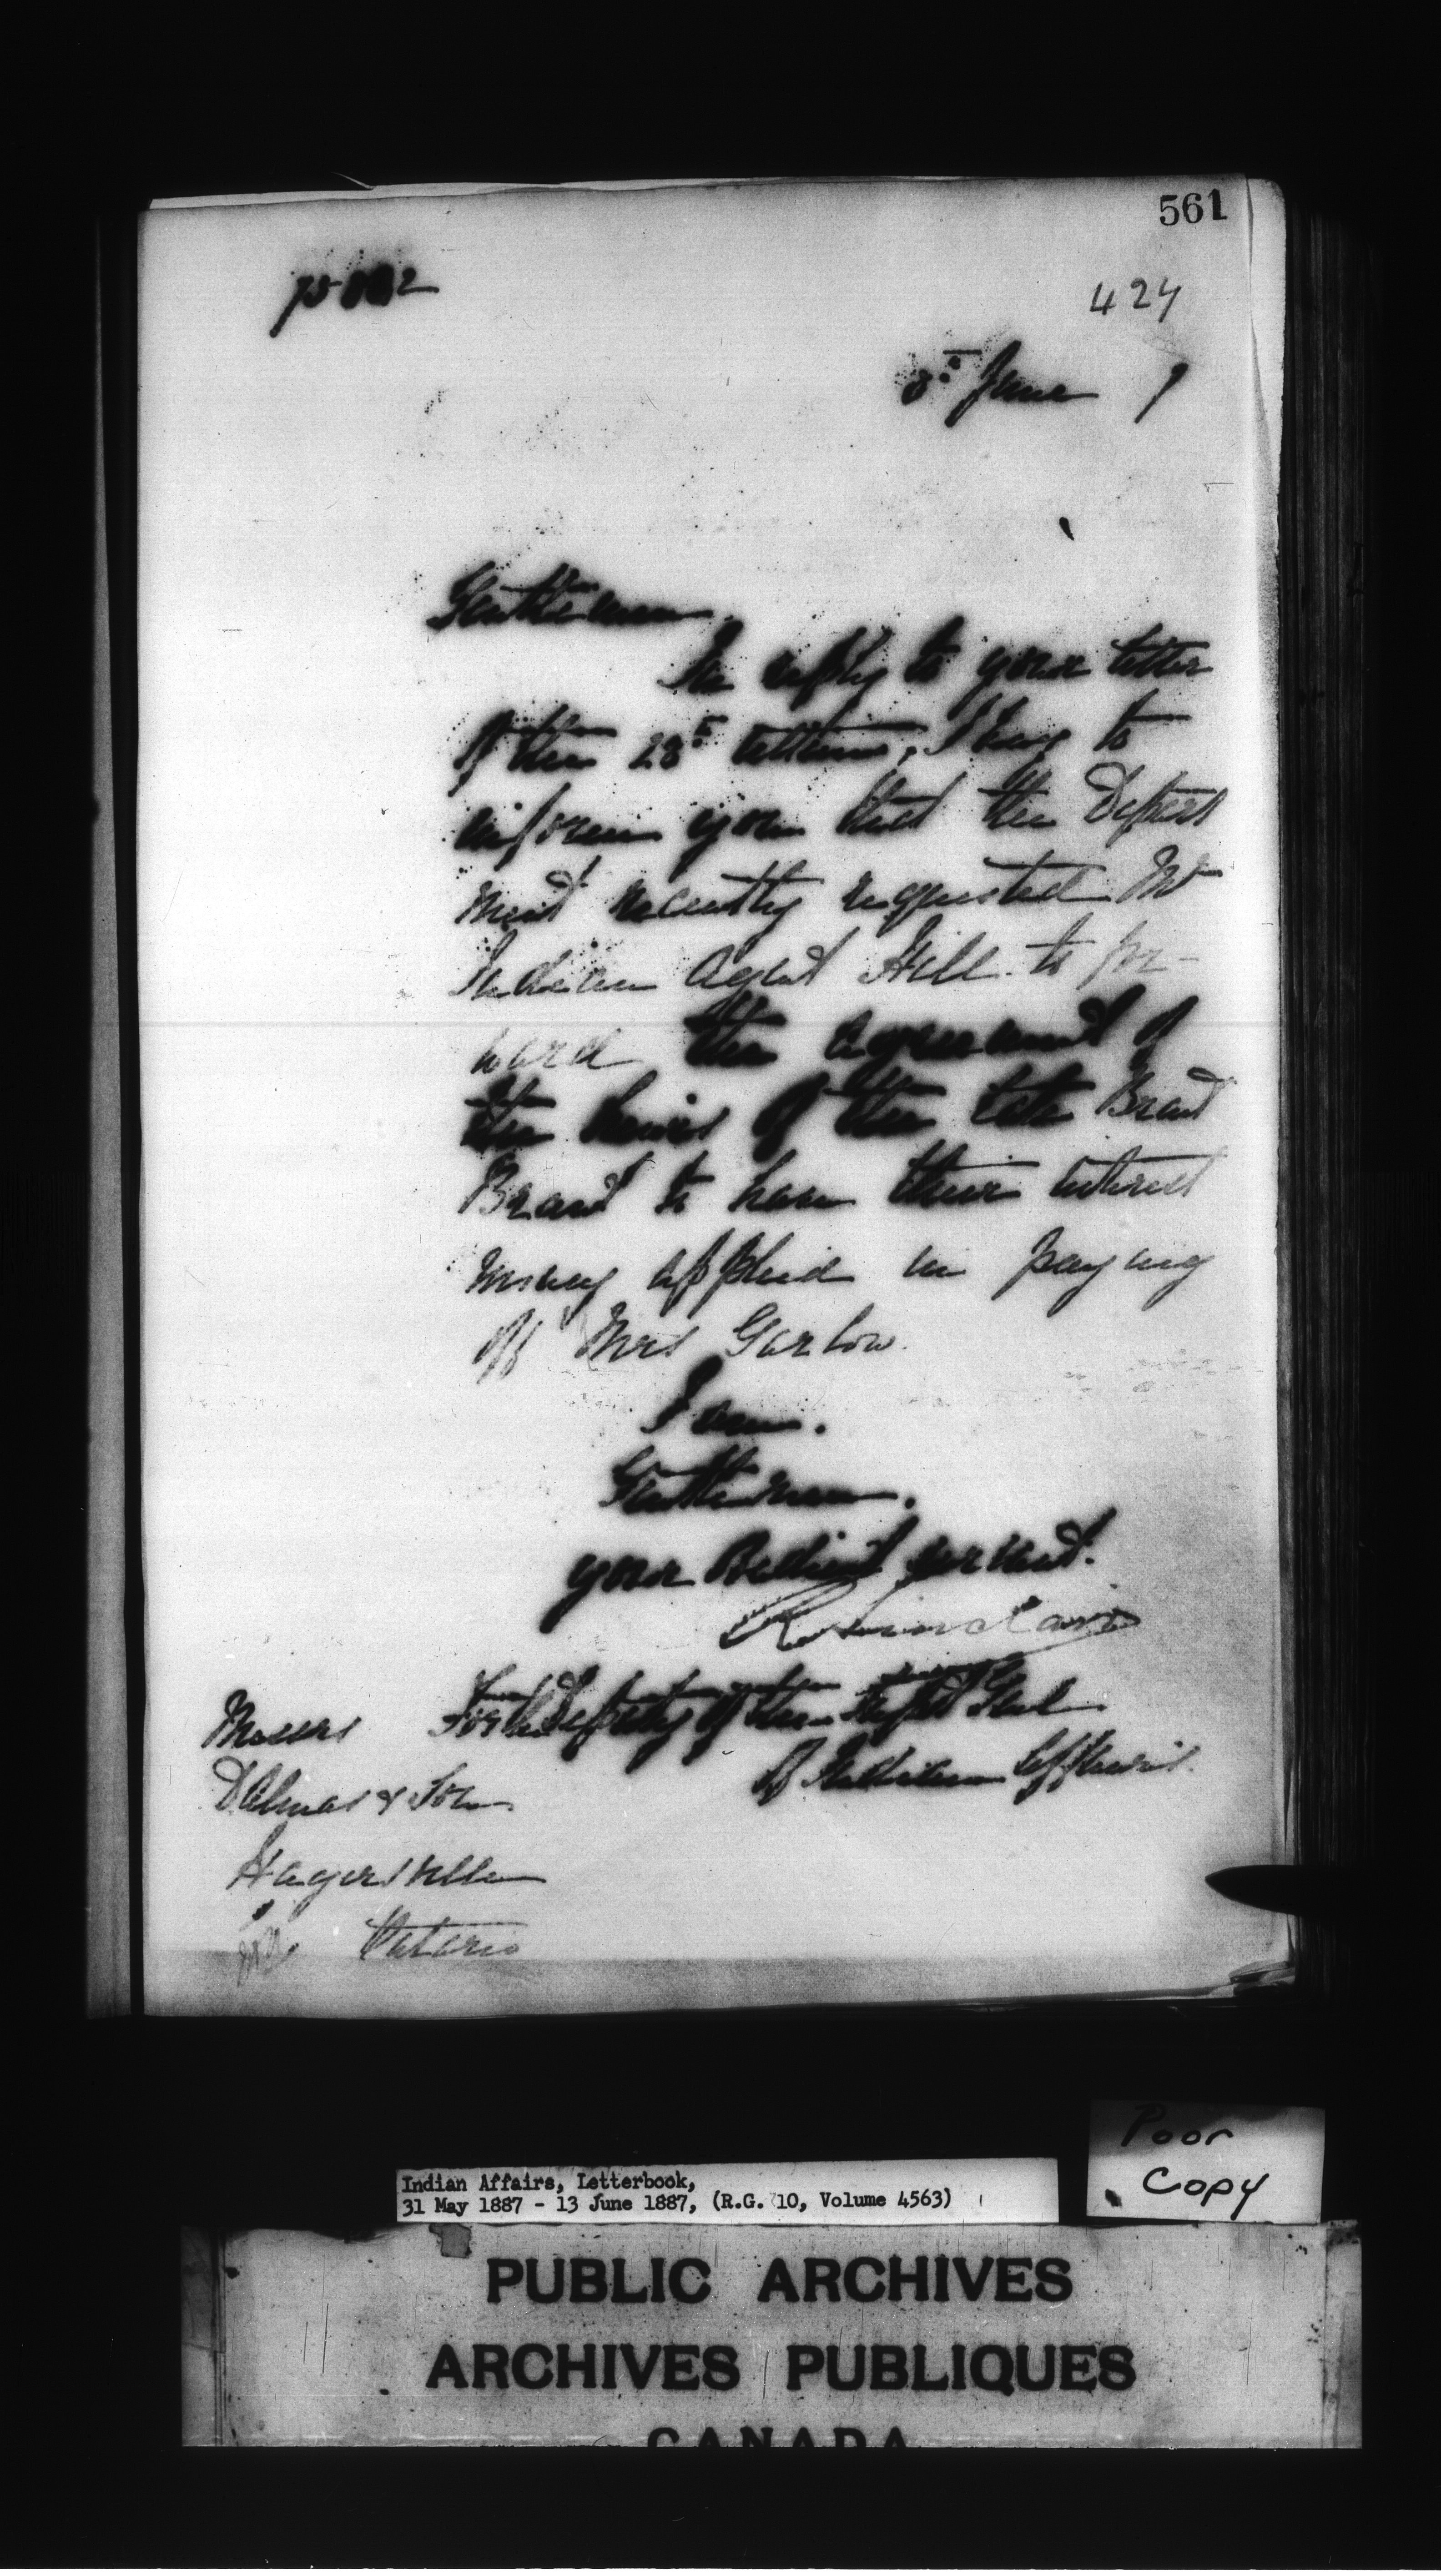 561
424
June 7
Gentlemen,
In reply to your letter
of the 28th ultimo, I have to
inform you that the Depart
ment recently requested Mr
Indian Agent Hill to for-
ward the agreement of
the heirs of the late Brant
Brant to have their interest
money applied in paying
off Mrs Garlow.
I am.
Gentlemen.
your Obedient servant.
R Sinclair
For the Deputy of the Supt Genl
of Indian Affairs.
Messrs
& Son
Hagersville
Ontario
Poor
Copy
Indian Affairs, Letterbook,
31 May 1887 - 13 June 1887, (R.G. 10, Volume 4563)
PUBLIC ARCHIVES
ARCHIVES PUBLIQUES
CANADA